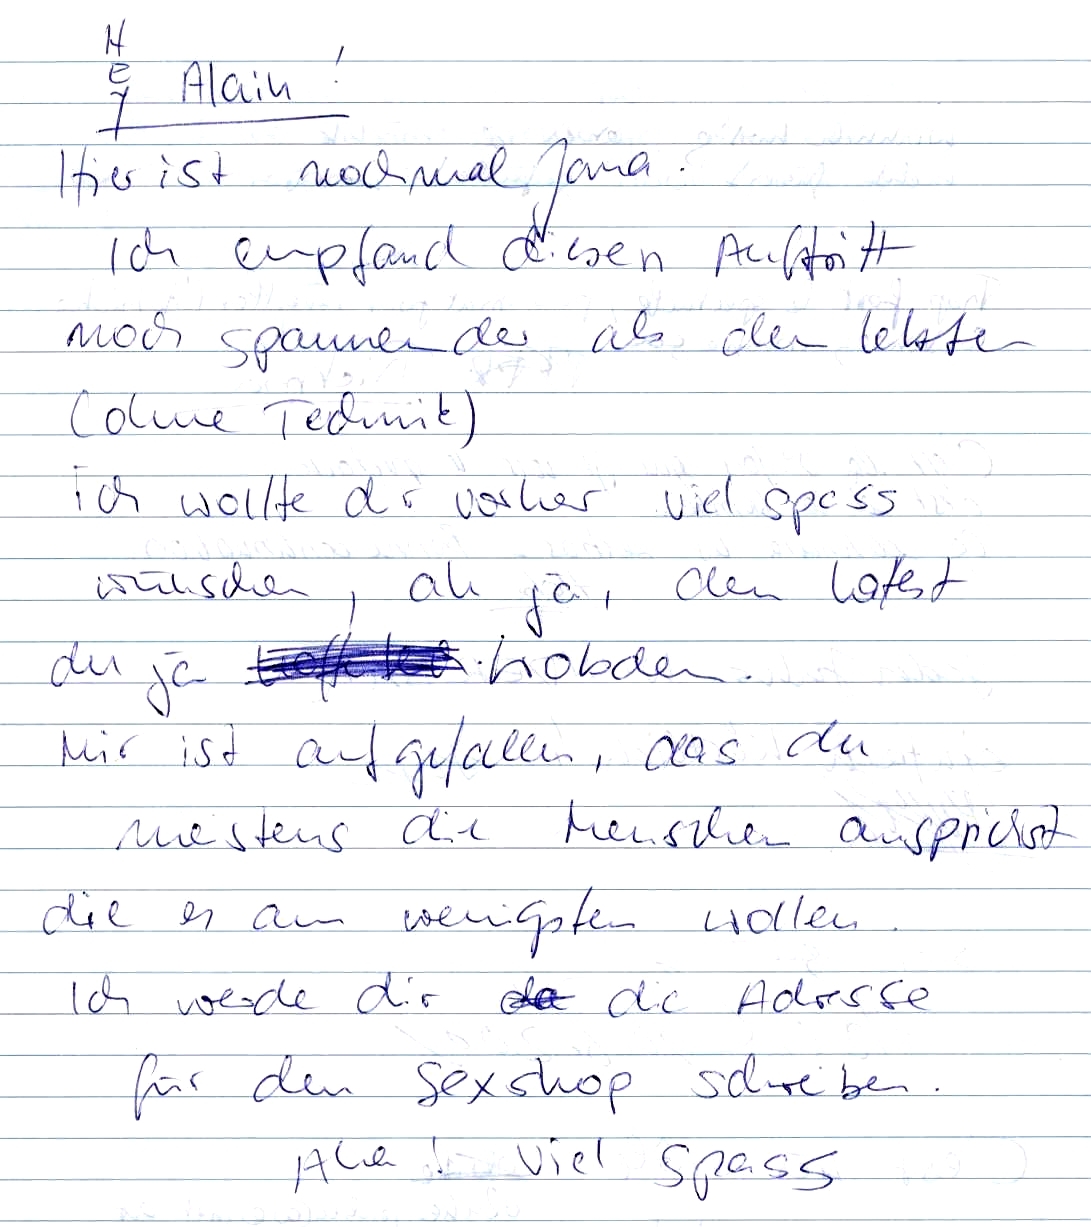 Hey Alain!
Hier ist nochmal Jana.
Ich empfand diesen Auftritt
noch spannender als den letzten
(ohne Technik)
ich wollte dir vorher viel spass
wünschen, ah ja, den hattest
du ja trotzdem.
Mir ist aufgefallen, das du
meistens die Menschen ansprichst
die es am wenigsten wollen.
Ich werde dir die Adresse
für den Sexshop schreiben.
Aha! viel Spass